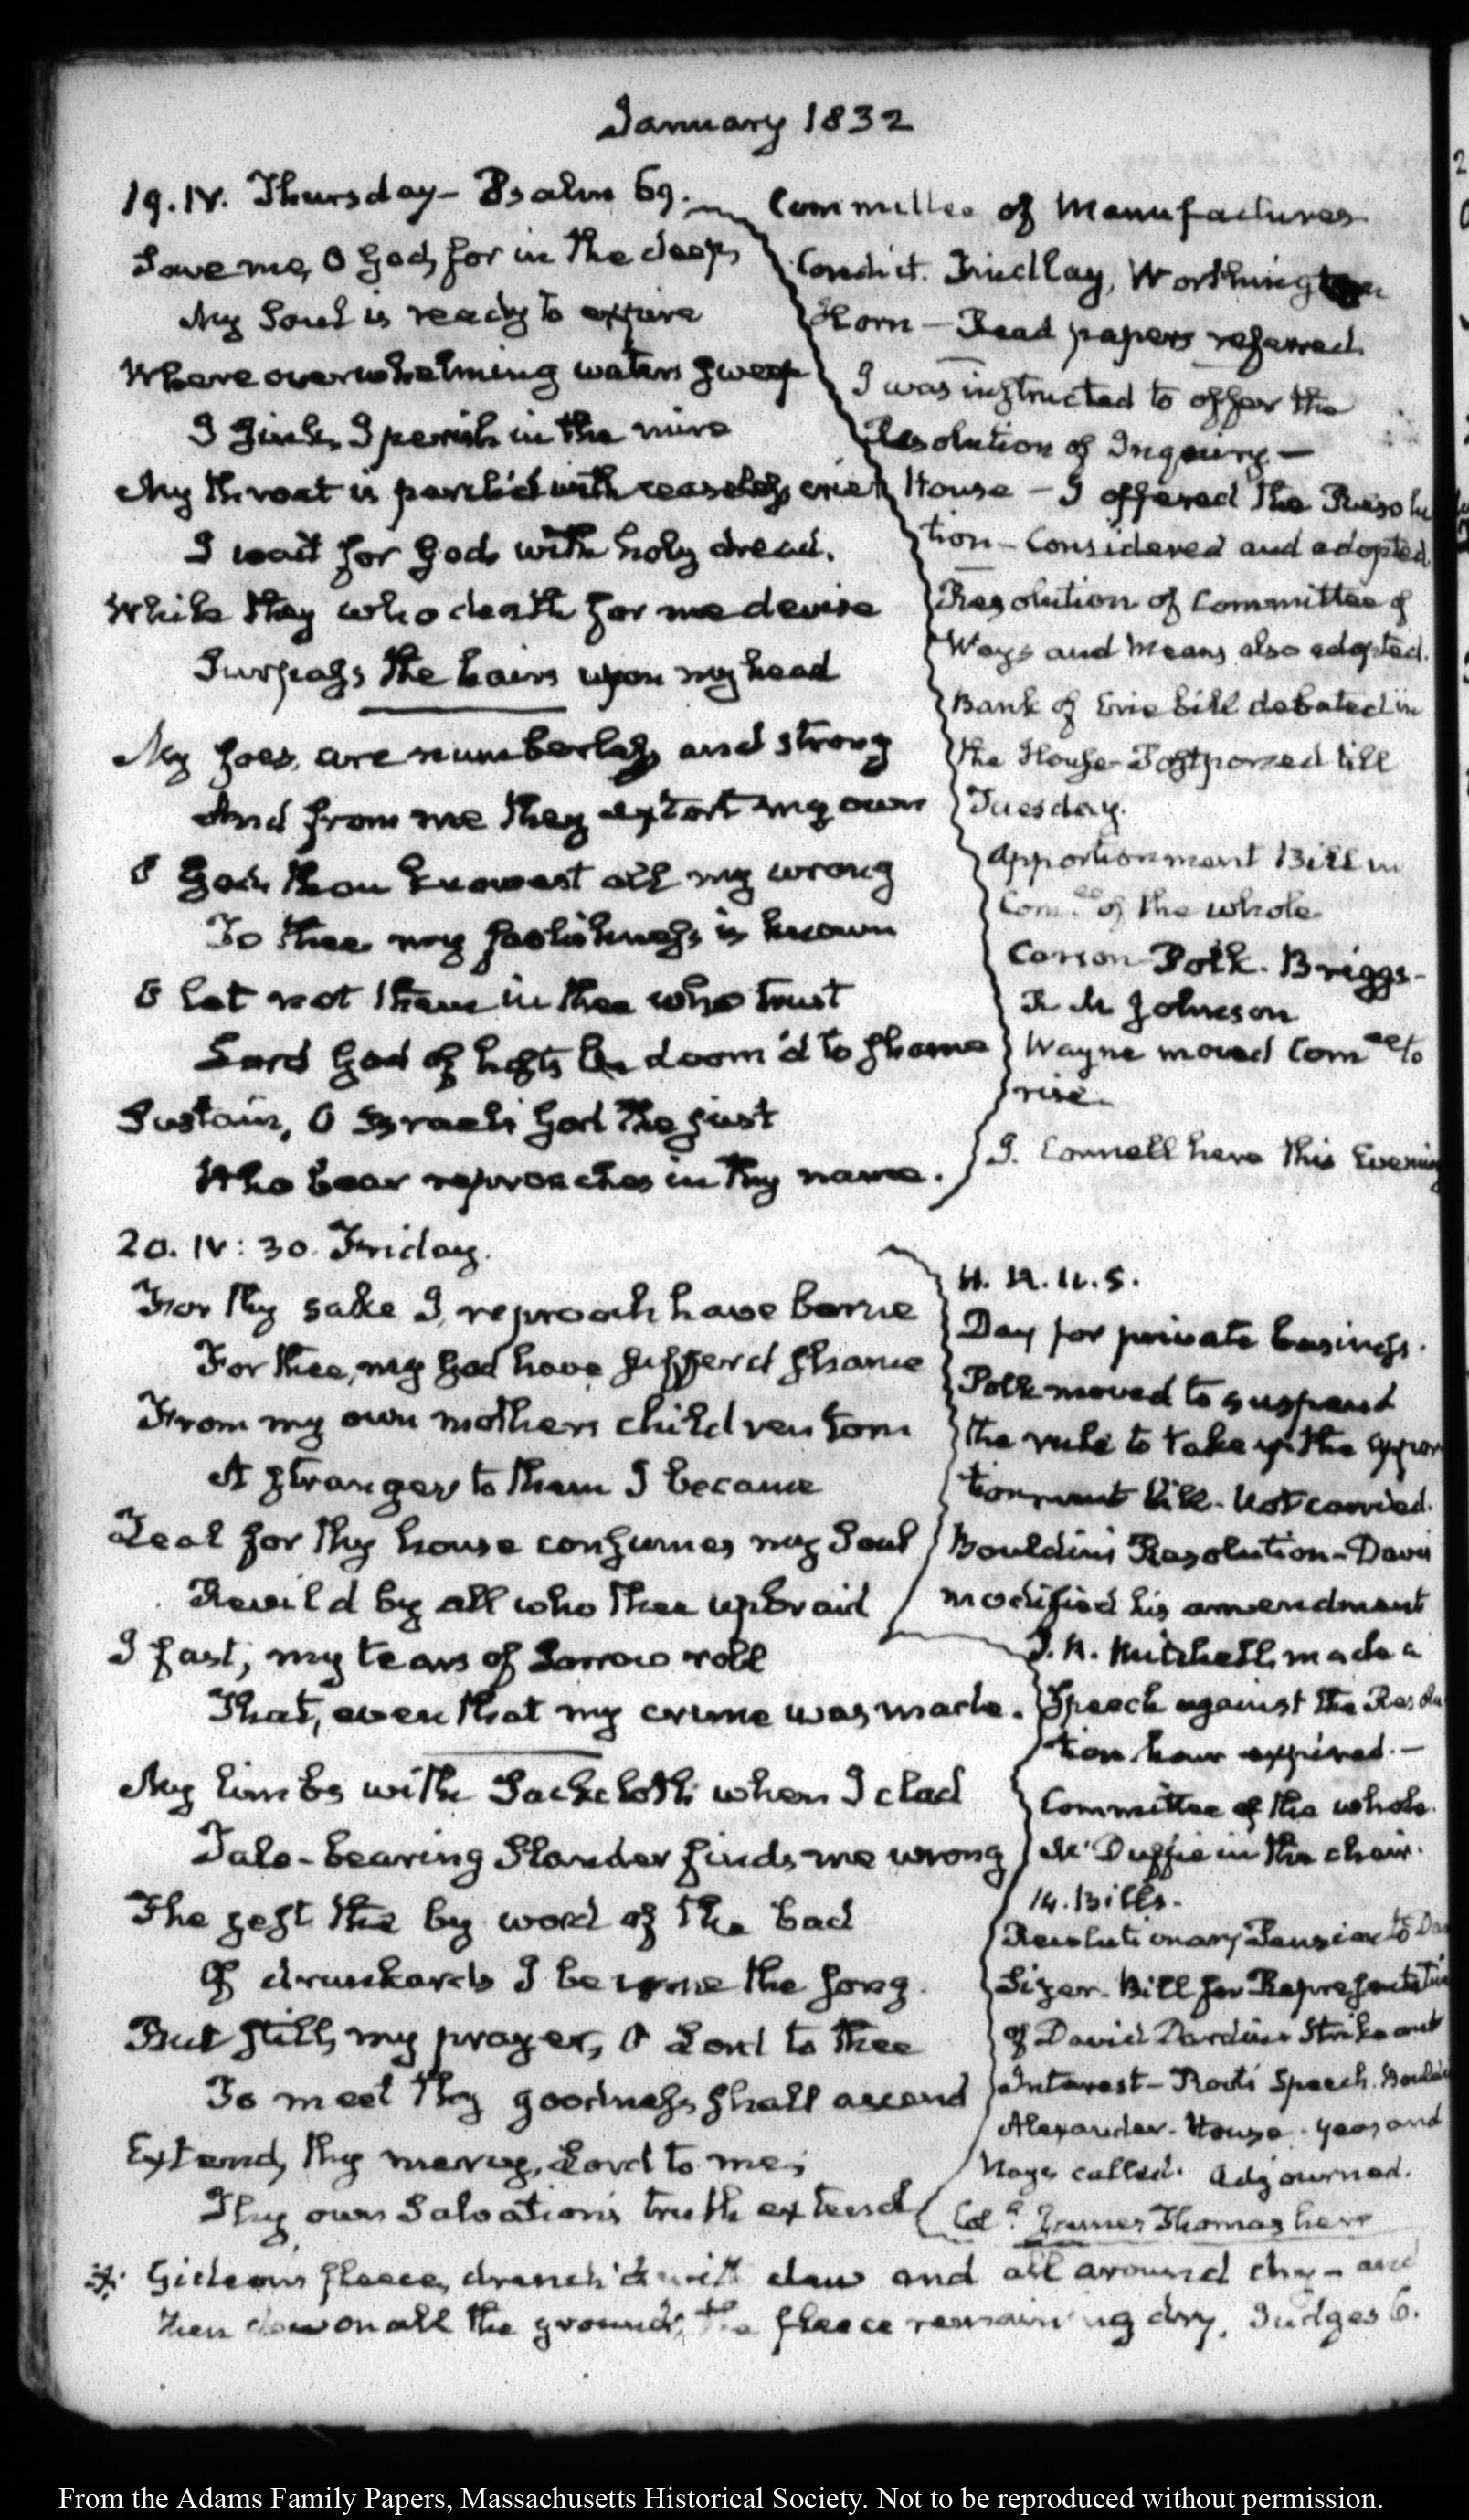 January 1832
19. IV. Thursday - Psalm 69.
Save me, O God, for in the deep,
My Soul is ready to expire
Where overwhelming waters sweep
I sink, I perish in the mire
My throat is parch'd with ceaseless cries
I wait for God, with holy dread.
While they who death for me devise
Surpass the hairs upon my head
My foes, are numberless and strong
And from me they extort my own
O God, thou knowest all my wrong
To thee my foolishness is known
O let not them in thee who trust
Lord God of hosts be doom'd to shame
Sustain, O Israel's God the just
Who bear reproaches in thy name.
Committee of Manufactures
Condict. Findlay, Worthington
Horn - Read papers referred.
I was instructed to offer the
Resolution of Inquiry. -
House - I offered the Resolu
tion - Considered and adopted
Resolution of Committee of
Ways and Means also adopted.
Bank of Erie bill debated in
the House - Postponed till
Tuesday.
Apportionment Bill in
Com.ee of the whole
Carson - Polk. Briggs -
R M Johnson
Wayne moved Com.ee to
rise.
J. Connell here this Evening
20. IV: 30. Friday.
For thy sake I, reproach have borne
For thee, my God have suffer'd shame
From my own mothers children torn
A stranger to them I became
Zeal for thy house consumes my Soul
Revil'd by all who thee upbraid
I fast, my tears of Sorrow roll
That, even that my crime was made.
My limbs with Sackcloth when I clad
Tale-bearing Slander finds me wrong
The jest the by word of the bad
Of drunkards I become the song.
But still, my prayer, O Lord to thee
To meet thy goodness shall ascend
Extend, thy mercy, Lord to me;
Thy own Salvation's truth extend
H. R. U. S.
Day for private business.
Polk moved to suspend
the rule to take up the appor
tionment bill - Not carried.
Bouldin's Resolution - Davis
modified his amendment
T. R. Mitchell made a
Speech against the Resolu
tion. hour expired. -
Committee of the whole.
McDuffie in the chair.
14. Bills.
Revolutionary Pension to
Bill for Representatives
of David Dardin - Strike out
Interest - Root's Speech.
Alexander. House - yeas and
Nays called. Adjourned.
Col.l Thomas here
* Gideon's fleece, drench'd with dew and all around dry - and
then dew on all the ground, the fleece remaining dry. Judges 6.
From the Adams Family Papers, Massachusetts Historical Society. Not to be reproduced without permission.